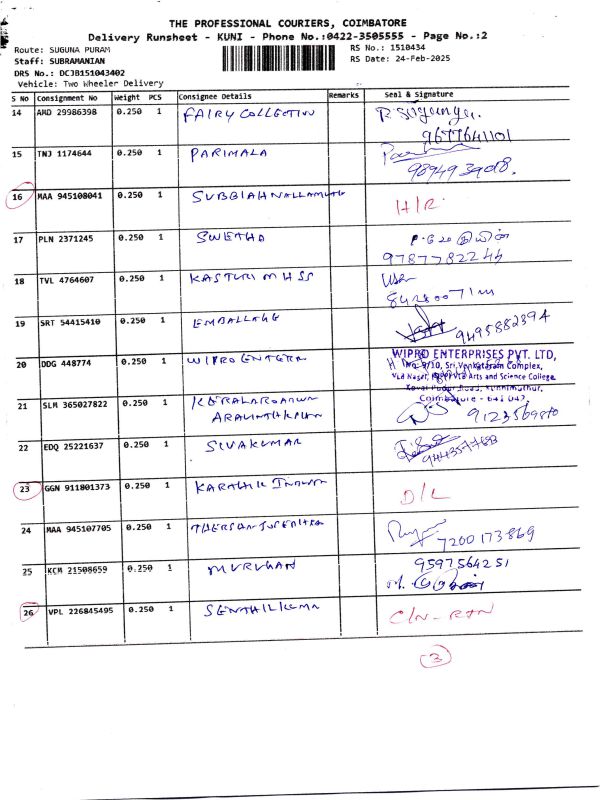 THE PROFESSIONAL COURIERS, COIMBATORE
Delivery Runsheet - KUNI - Phone No.:0422-3505555 - Page No.:2
Route: SUGUNA PURAM
RS No.: 1510434
Staff: SUBRAMANIAN
RS Date: 24-Feb-2025
DRS No.: DCJB151043402
Vehicle: Two Wheeler Delivery
S No Consignment No Weight PCS Consignee Details Remarks Seal & Signature
14 AMD 29986398 0.250 1 FAIRY COLLECTION
9677641101
15 TNJ 1174644 0.250 1 PARIMALA
16 MAA 945108041 0.250 1 SUBBIAH NALLAMUTHU H/R
17 PLN 2371245 0.250 1 SWETHA
9787782244
18 TVL 4764607 0.250 1 KASTURI M HSS
19 SRT 54415410 0.250 1 EMBALLAGE 9495882394
20 DDG 448774 0.250 1 WIPRO ENTERPR
WIPRO ENTERPRISES PVT. LTD,
No: 9/10, Sri Venkatram Complex,
Arts and Science College,
Coimbatore - 641 042.
21 SLM 365027822 0.250 1
9123569870
22 EDQ 25221637 0.250 1 SIVAKUMAR
23 GGN 911801373 0.250 1 KARTHIK D/L
24 MAA 945107705 0.250 1
7200173869
25 KCM 21508659 0.250 1 MURUGAN 9597564251
26 VPL 226845495 0.250 1 SENTHILKUMA C/N-RTN
3